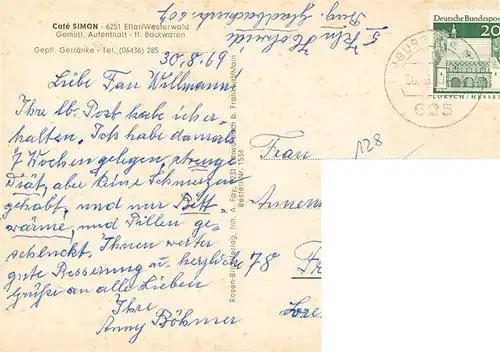 Café SIMON - 6251 Ellar/Westerwald
Gemütl. Aufenthalt - ff. Backwaren
Gepfl. Getränke - Tel. (06436) 285
30.8.69
Liebe Frau Willmann!
Ihre lb. Post habe ich er-
halten. Ich habe damals
7 Wochen gelegen, strenge
Diät, aber keine Schmerzen
gehabt, und nur Bett-
wärme, und Pillen ge-
schluckt. Ihnen weiter
gute Besserung u. herzliche
Grüße an alle Lieben
Ihre
Anny Böhmer
Rosen-Bild-Verlag, Inh. A. Fay, 6231 b. Frankfurt/Main
Bestell-Nr. 1534
5 Köln
Frau
128
78
Deutsche Bundespost
20
LORSCH/HESSEN
625